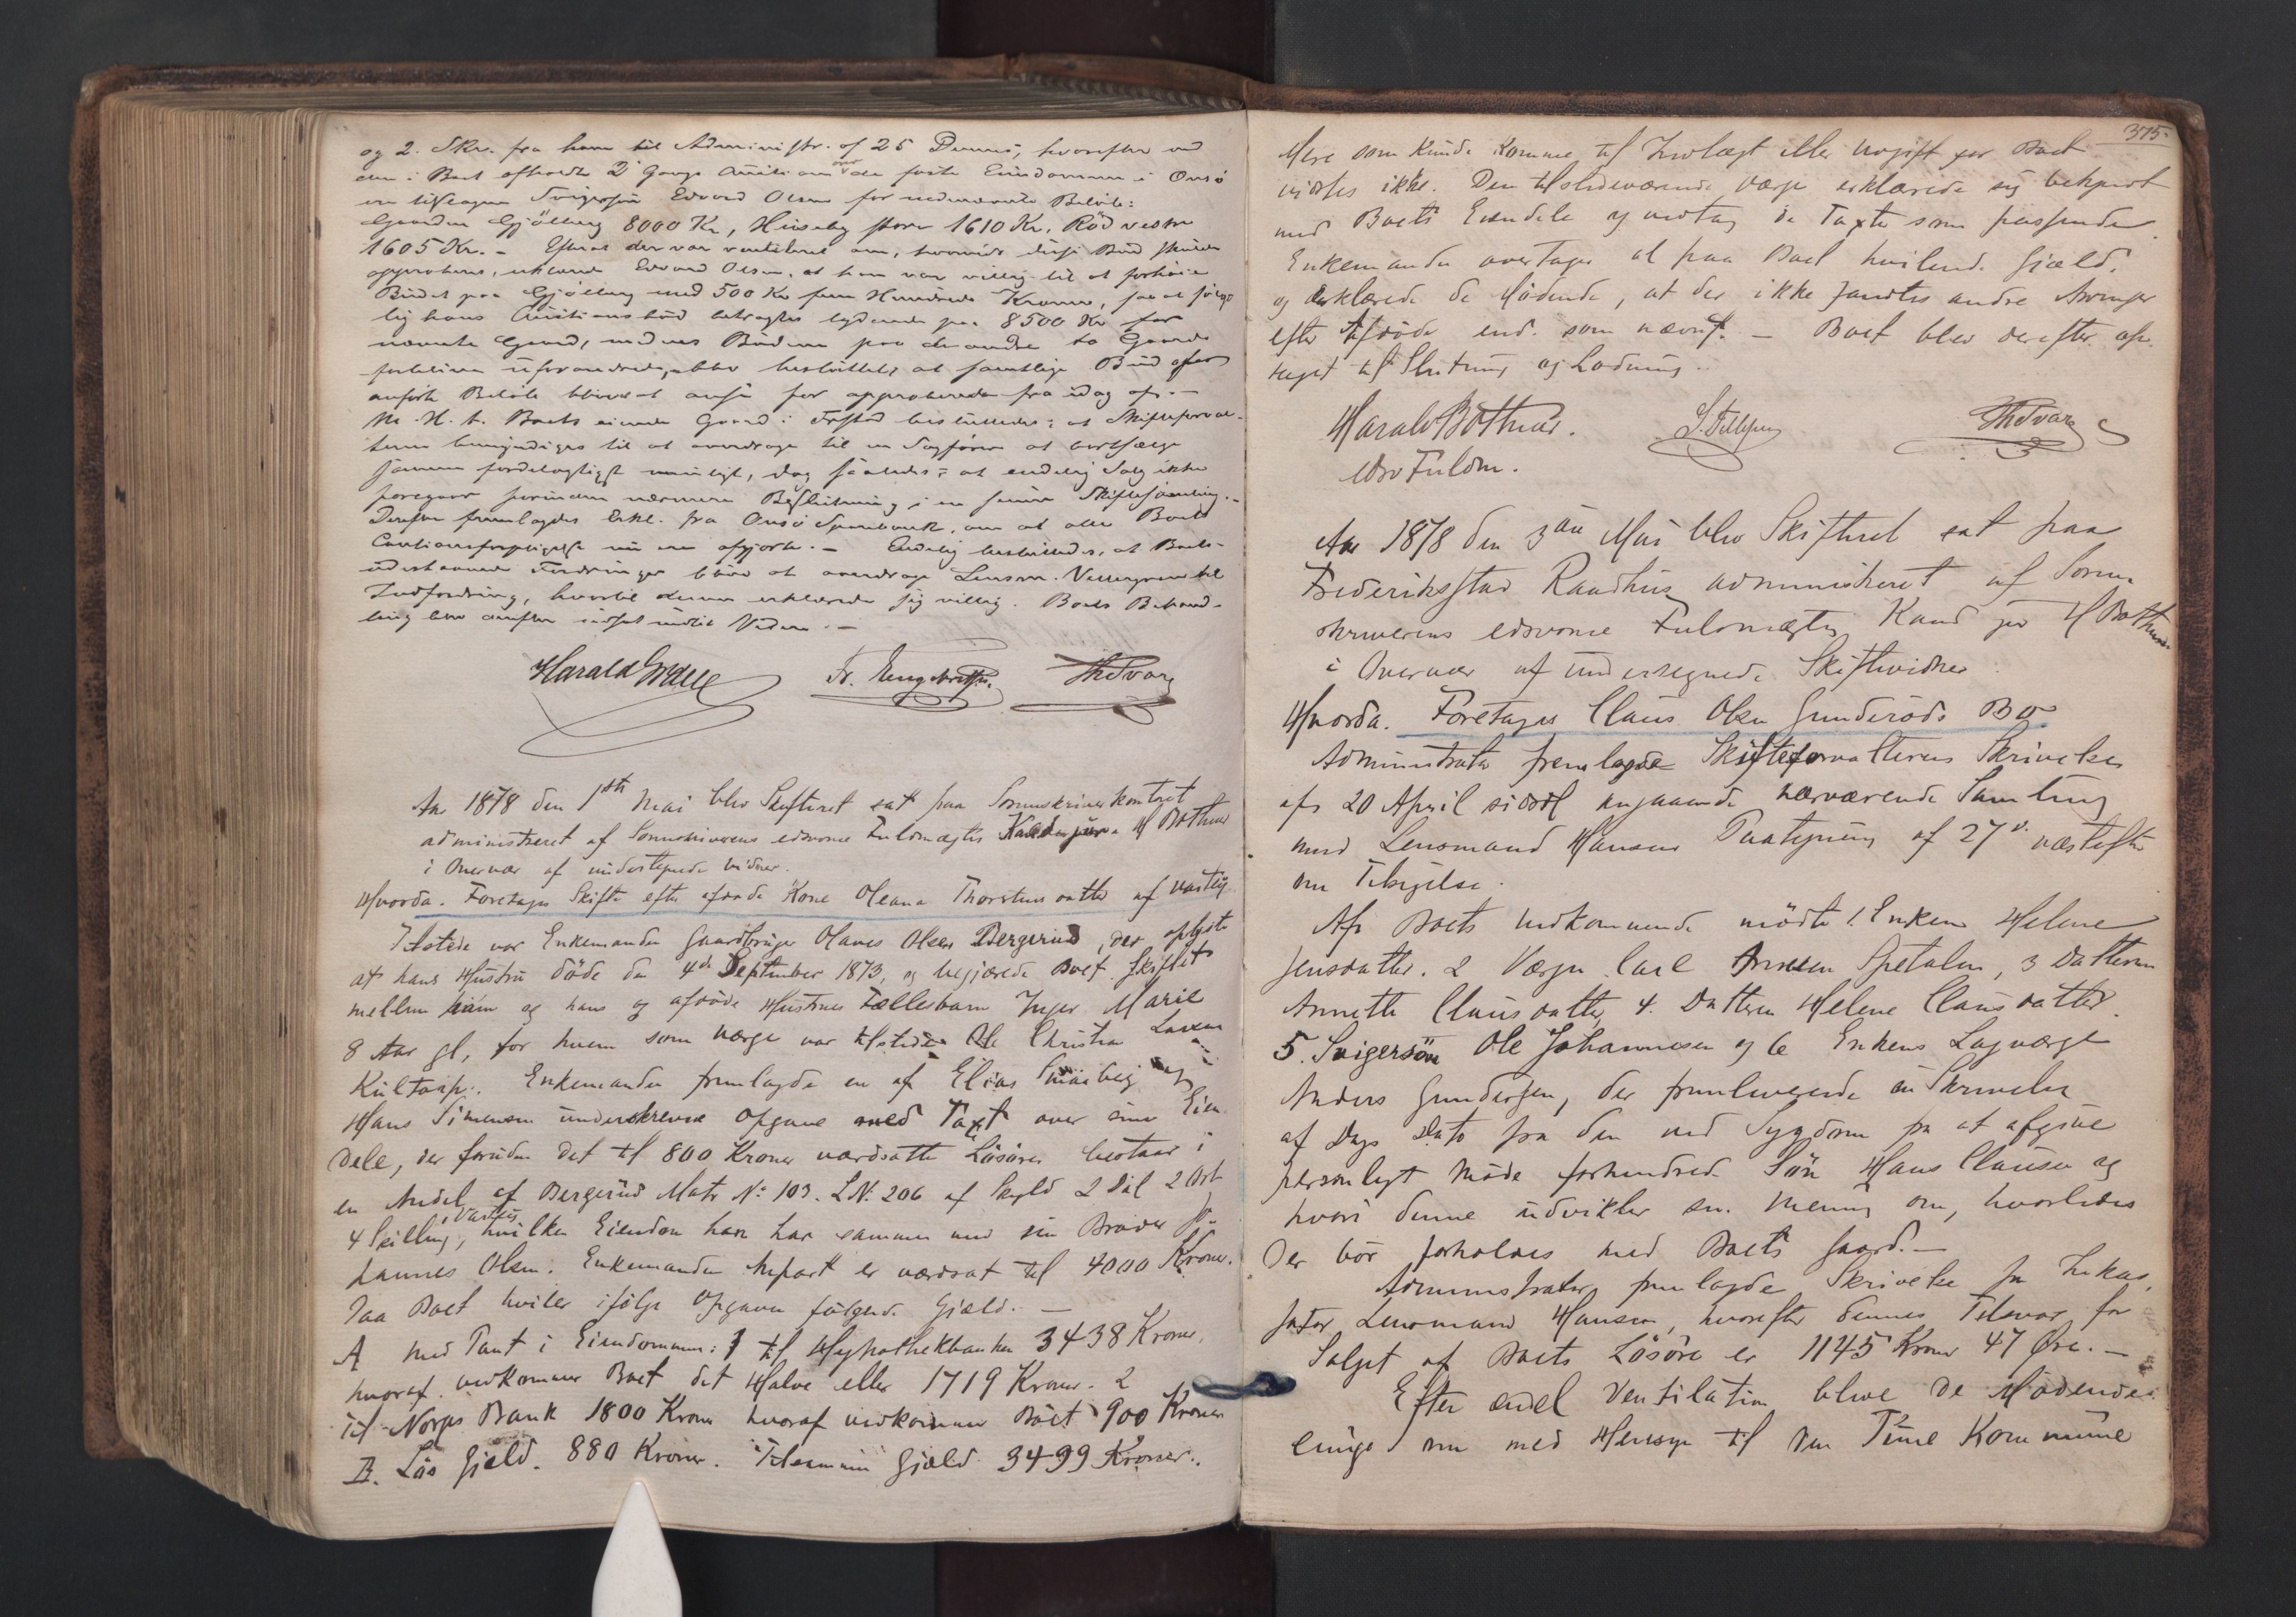 og 2. Skr. fra ham til Administr. af 25 Dennes, hvorefter ved
den i Boet afholdte 2 Gangs Auction over de faste Eiendomme i Onsö
er tilslagen Svigersön Edvard Olsen for nedennævnte Belöb:
Gaarden Gjölberg 8000 Kr, Huseby store 1610 Kr, Röd vestre
1605 Kr. - Efterat der var ventileret om, hvorvidt disse Bud skulde
approberes, erklærede Edvard Olsen, at han var villig til at forhöie
Budet paa Gjölberg med 500 Kr fem Hundrede Kroner, saa at fölge-
lig hans Auctionsbud betragtes lydende paa 8500 Kr for
nævnte Gaard, medens Budene paa de andre to Gaarde
forbliver uforandrede, blev besluttet, at samtlige Bud efter
anförte Belöb bliver at anse for approberede fra idag af. -
M. H. t. Boets eiende Gaard i besluttedes: at Skifteforval-
teren bemyndiges til at overdrage til en Sagförer at bortsælge
samme fordelagtigst muligt, dog saaledes, at endelig Salg ikke
foregaar forinden nærmere Beslutning i en senere Skiftesamling. -
Derefter fremlagdes Erkl. fra Onsö Sparebank, om at alle Boets
Cautionsforpligtelser nu er afgjorte. - Endelig besluttedes, at Boets
udestaaende Fordringer bliver at overdrage Lensm. til
Indfordring, hvortil denne erklærede sig villig. Boets Behand-
ling blev derefter udsat indtil Videre. -
Harald Fr. Engebretsen ThSvar
Aar 1878 den 1ste Mai blev Skifteret sat paa Sorenskriverkontoret
administreret af Sorenskriverens edsvorne Fuldmægtig Kand. jur. H Bothner
i Overvær af undertegnede Vidner.
Hvorda. Foretages Skifte efter afdøde Kone Oleana Thorstensdatter af
Tilstede var Enkemanden Gaardbruger Olaves Olsen Bergerud, der oplyste
at hans Hustru döde den 4de September 1873, og begjærede Boet skiftet
mellem ham og hans og afdöde Hustrues Fællesbarn Inger Marie
8 Aar gl, for hvem som Værge var tilstede Ole Christian Larsen
Kultorp. Enkemanden fremlagde en af Elias og
Hans Simensen underskreven Opgave med Taxt over sine Eien-
dele, der foruden det til 800 Kroner værdsatte Lösöre bestaar i
en Andel af Bergerud Matr No 103. L.No. 206 af Skyld 2 Dal 2 Ort
4 Skilling, hvilken Eiendom han har sammen med sin Broder Jo-
hannes Olsen. Enkemandens Anpart er værdsat til 4000 Kroner.
Paa Boet hviler ifölge Opgaven fölgende Gjæld. -
A med Pant i Eiendommen: 1 til Hypothekbanken 3438 Kroner,
hvoraf vedkommer Boet det Halve eller 1719 Kroner. 2
til Norges Bank 1800 Kroner hvoraf vedkommer Boet 900 Kroner
B. Lös Gjæld. 880 Kroner. Tilsammen Gjæld 3499 Kroner.
375.
Mere som kunde komme til Indtægt eller Udgift for Boet
vidstes ikke. Den tilstedeværende Værge erklærede sig bekjendt
med Boets Eiendele og vedtog de Taxter som passende.
Enkemanden overtager al paa Boet hvilende Gjæld,
og erklærede de Mödende, at der ikke fandtes andre Arvinger
efter Afdöde end som nævnt. - Boet blev derefter op-
taget til Slutning og Lodning.
Harald Bothner. ThSvar
edsv Fuldm.
Aar 1878 den 3die Mai blev Skifteret sat paa
Frederiksstad Raadhus administreret af Soren-
skriverens edsvorne Fuldmægtig Kand jur H Bothner
i Overvær af undertegnede Skiftevidner.
Hvorda. Foretages Claus Olsen Gunderöds Bo.
Administrator fremlagde Skifteforvalterens Skrivelse
af 20 April sidstl angaaende nærværende Samling
med Lensmand Hansens Paategning af 27de næstefter
om Tilsigelse.
Af Boets Vedkommende mödte 1. Enken Helene
Jensdatter. 2 Værgen Carl Spetalen, 3 Datteren
Annette Clausdatter, 4. Datteren Helene Clausdatter.
5. Svigersön Ole Johannesen og 6 Enkens Lagværge
Anders Gundersen, der fremleverede en Skrivelse
af Dags Dato fra den ved Sygdom fra at afgive
personligt Möde forhindrede Sön Hans Clausen og
hvori denne udvikler sin Mening om, hvorledes
der bör forholdes med Boets Gaard. -
Administrator fremlagde Skrivelse fra Inkas-
sator Lensmand Hansen, hvorefter dennes Tilsvar for
Salget af Boets Lösöre er 1145 Kroner 47 Øre. -
Efter endel Ventilation bleve de Mödende
enige om med Hensyn til den Tune Kommune